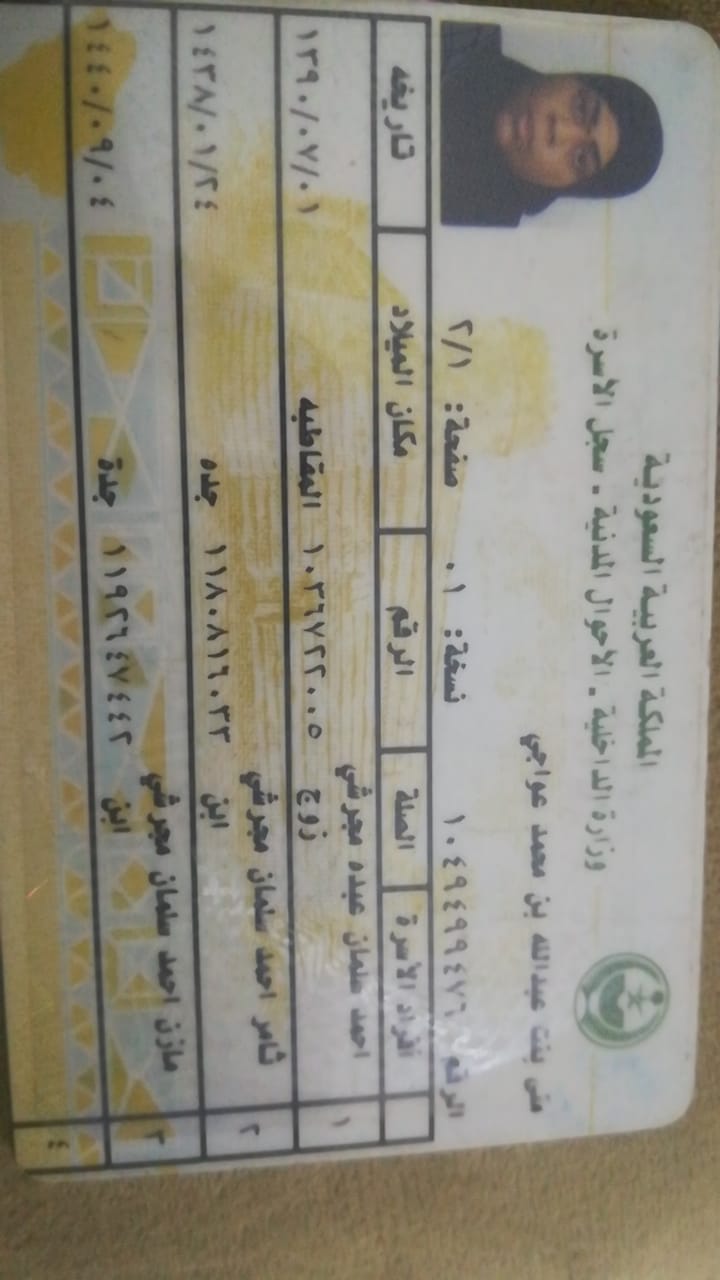 المملكة العربية السعودية
وزارة الداخلية . الأحوال المدنية . سجل الأسرة
منى بنت عبدالله بن محمد عواجي
الرقم ١٠٤٩٤٩٩٤٧٦ نسخة: ٠١ صفحة: ٢/١
أفراد الأسرة الصلة الرقم مكان الميلاد تاريخه
١ احمد سلمان عبده مجرشي
زوج ١٠٣٦٧٢٢٠٠٥ المقاطبه ١٣٩٠/٠٧/٠١
٢ ثامر احمد سلمان مجرشي
ابن ١١٨٠٨١٦٠٣٣ جده ١٤٣٨/٠١/٢٤
٣ مازن احمد سلمان مجرشي
ابن ١١٩٢٦٤٧٤٤٢ جدة ١٤٤٠/٠٩/٠٤
٤